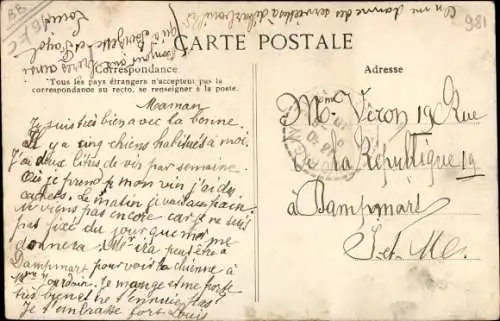 On me donne des serviettes
CARTE POSTALE
Correspondance
Adresse
Tous les pays étrangers n'acceptent pas la
correspondance au recto, se renseigner à la poste.
Maman
Je suis très bien avec la bonne
Il y a cinq chiens habitués a moi.
J'ai deux litres de vin par semaine.
Où je prend mon vin j'ai du
Le matin je vais au pain.
Ne viens pas encore car je ne suis
pas fixé du jour que moi me
donnera. Mr ira peut être à
Dampmart pour voir la chienne à
Mme Jourdain. Je mange et me porte
très bien et ne m'ennuie pas
Je t'embrasse fort Louis
Mme Véron 19 Rue
de la République 19
à Dampmart
S-et-M.
981